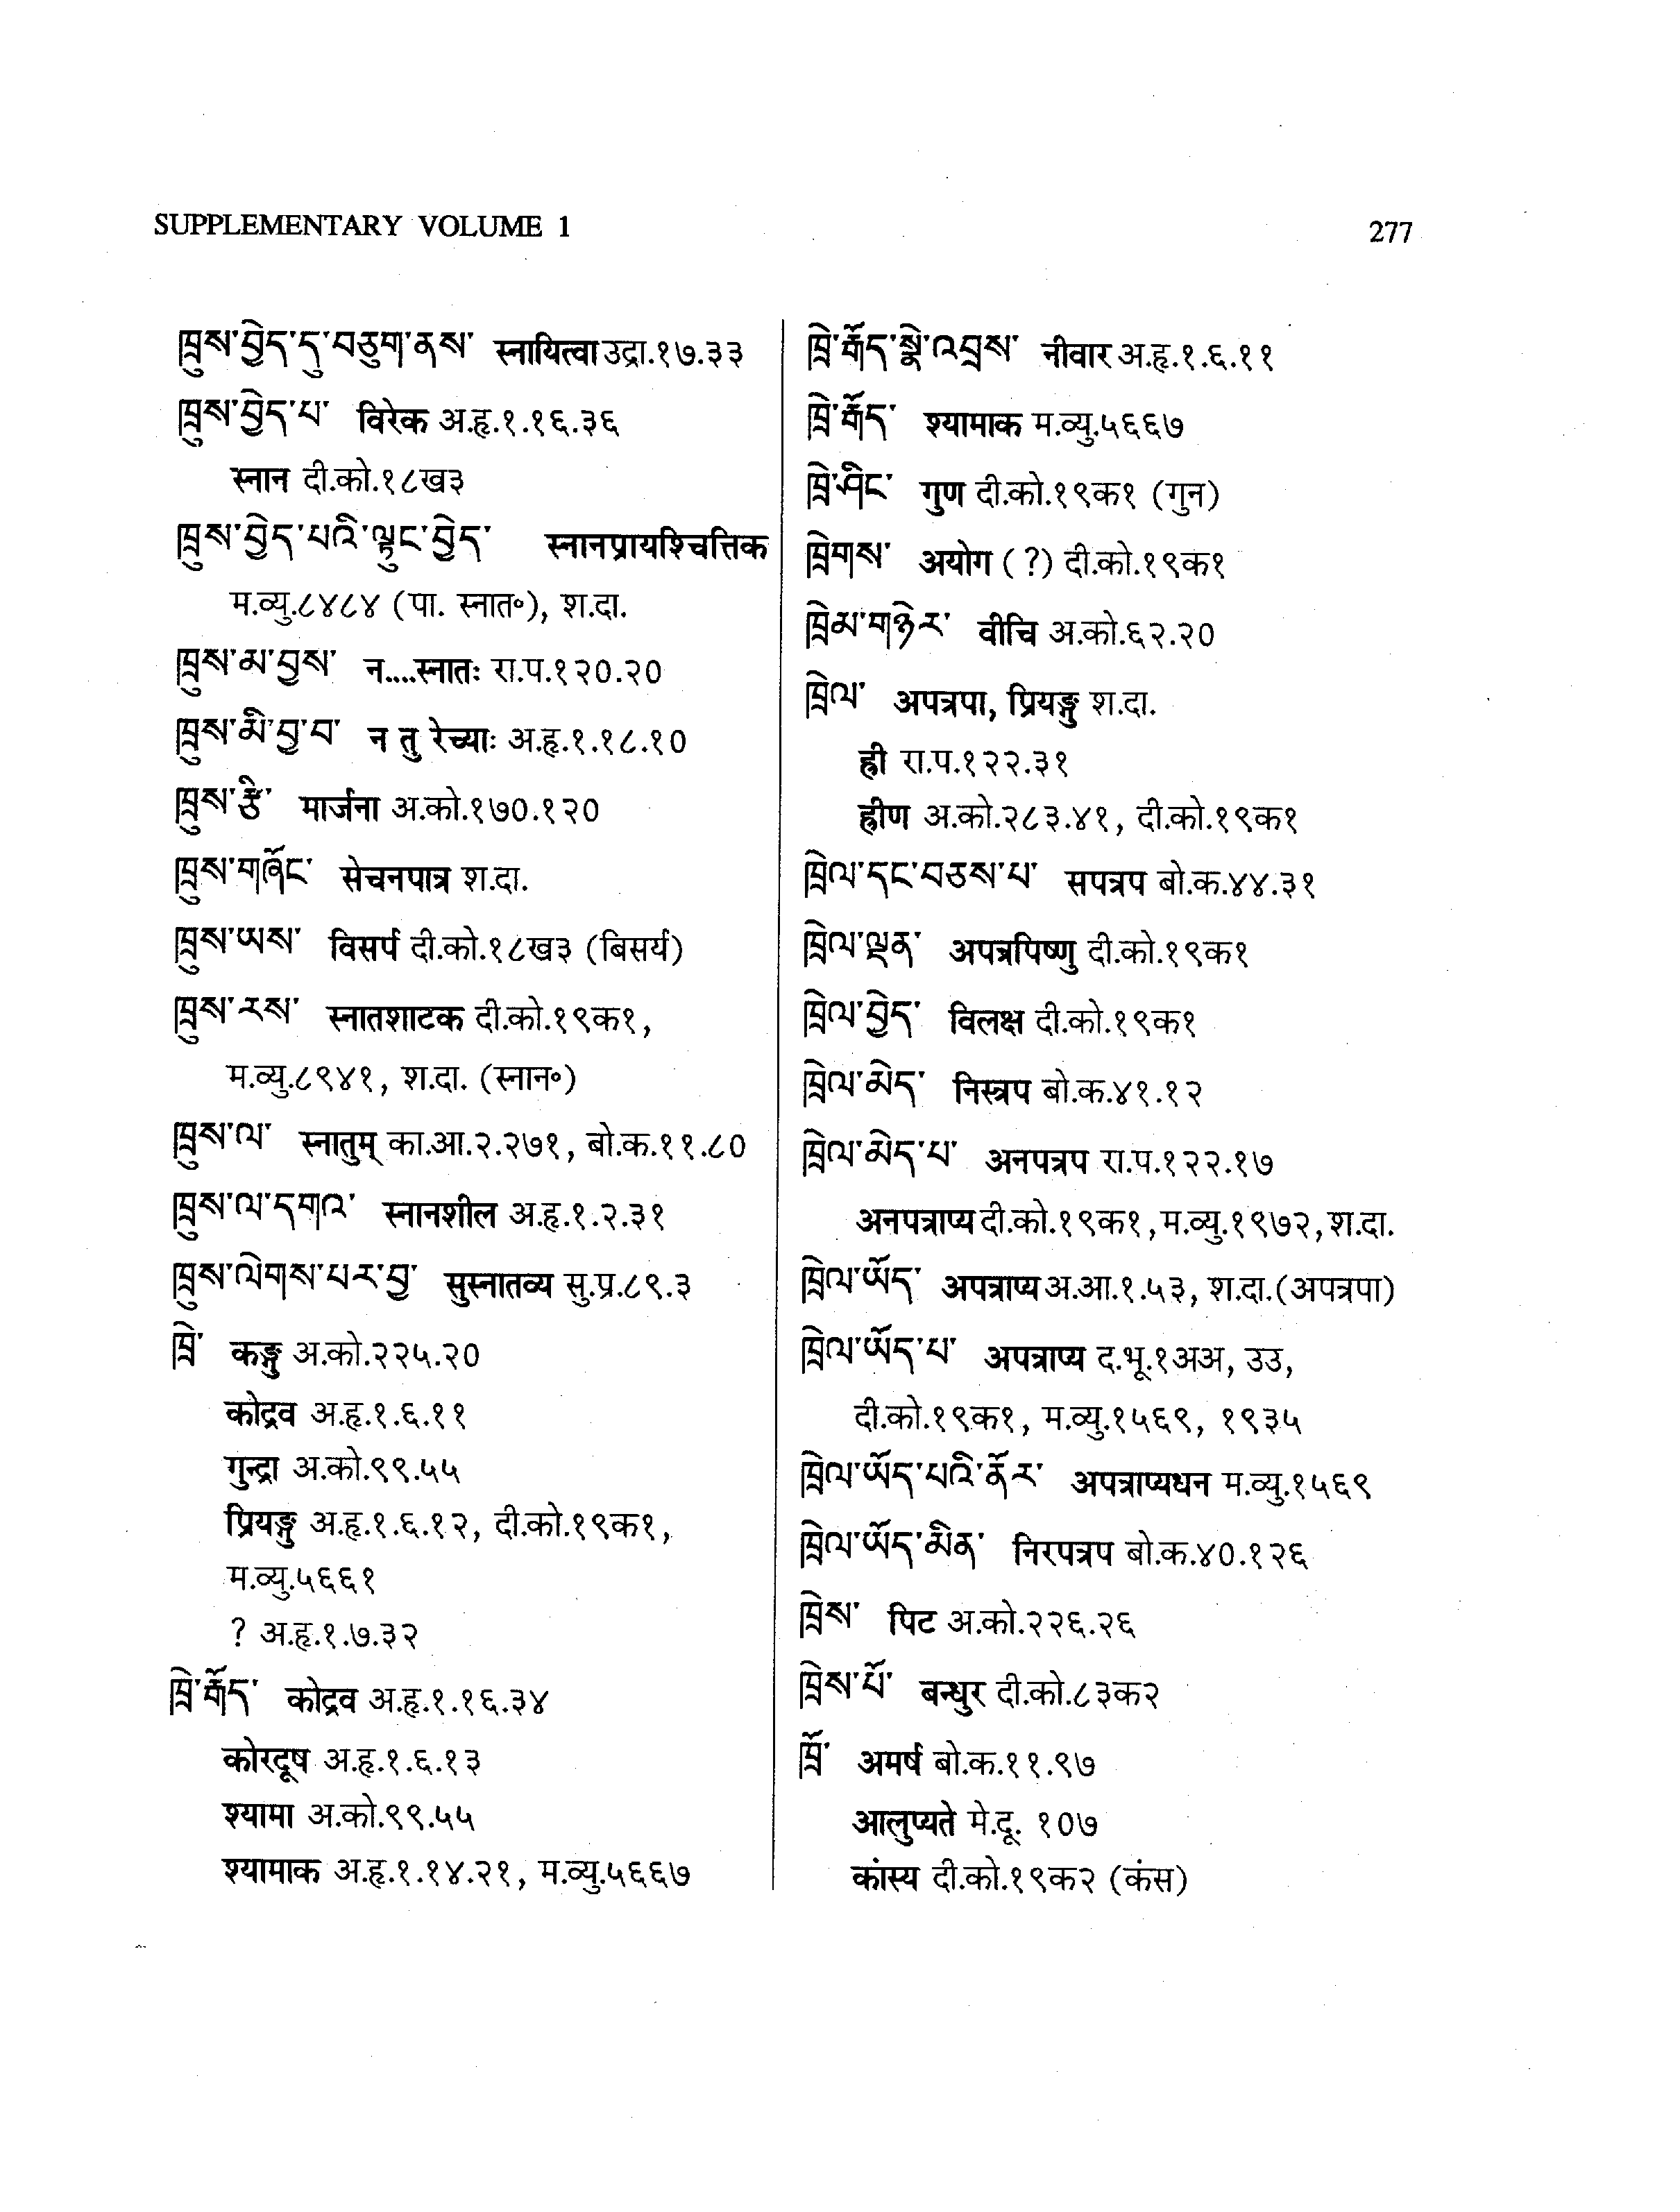 SUPPLEMENTARY VOLUME 1
277
ཁྲུས་བྱེད་དུ་བཅུག་ནས་ स्नायित्वा उद्रा.१७.३३
ཁྲུས་བྱེད་པ་ विरेक अ.हृ.१.१६.३६
स्नान दी.को.१८ख३
ཁྲུས་བྱེད་པའི་ལྟུང་བྱེད་ स्नानप्रायश्चित्तिक
म.व्यु.८४८४ (पा. स्नात॰), श.दा.
ཁྲུས་མ་བྱས་ न....स्नातः रा.प.१२०.२०
ཁྲུས་མི་བྱ་བ་ न तु रेच्याः अ.हृ.१.१८.१०
ཁྲུས་རྩི་ मार्जना अ.को.१७०.१२०
ཁྲུས་གཞོང་ सेचनपात्र श.दा.
ཁྲུས་ཡས་ विसर्प दी.को.१८ख३ (बिसर्य)
ཁྲུས་རས་ स्नातशाटक दी.को.१९क१,
म.व्यु.८९४१, श.दा. (स्नान॰)
ཁྲུས་ལ་ स्नातुम् का.आ.२.२७१, बो.क.११.८०
ཁྲུས་ལ་དགའ་ स्नानशील अ.हृ.१.२.३१
ཁྲུས་ལེགས་པར་བྱ་ सुस्नातव्य सु.प्र.८९.३
ཁྲེ་ कङ्गु अ.को.२२५.२०
कोद्रव अ.हृ.१.६.११
गुन्द्रा अ.को.९९.५५
प्रियङ्गु अ.हृ.१.६.१२, दी.को.१९क१,
म.व्यु.५६६१
? अ.हृ.१.७.३२
ཁྲེ་རྒོད་ कोद्रव अ.हृ.१.१६.३४
कोरदूष अ.हृ.१.६.१३
श्यामा अ.को.९९.५५
श्यामाक अ.हृ.१.१४.२१, म.व्यु.५६६७
ཁྲེ་རྒོད་སྣེ་འབྲས་ नीवार अ.हृ.१.६.११
ཁྲེ་རྒོད་ श्यामाक म.व्यु.५६६७
ཁྲེ་ཤིང་ गुण दी.को.१९क१ (गुन)
ཁྲེགས་ अयोग (?) दी.को.१९क१
ཁྲེམ་གཉེར་ वीचि अ.को.६२.२०
ཁྲེལ་ अपत्रपा, प्रियङ्गु श.दा.
ह्री रा.प.१२२.३१
ह्रीण अ.को.२८३.४१, दी.को.१९क१
ཁྲེལ་དང་བཅས་པ་ सपत्रप बो.क.४४.३१
ཁྲེལ་ལྡན་ अपत्रपिष्णु दी.को.१९क१
ཁྲེལ་བྱེད་ विलक्ष दी.को.१९क१
ཁྲེལ་མེད་ निस्त्रप बो.क.४१.१२
ཁྲེལ་མེད་པ་ अनपत्रप रा.प.१२२.१७
अनपत्राप्य दी.को.१९क१, म.व्यु.१९७२, श.दा.
ཁྲེལ་ཡོད་ अपत्राप्य अ.आ.१.५३, श.दा.(अपत्रपा)
ཁྲེལ་ཡོད་པ་ अपत्राप्य द.भू.१अअ, उउ,
दी.को.१९क१, म.व्यु.१५६९, १९३५
ཁྲེལ་ཡོད་པའི་ནོར་ अपत्राप्यधन म.व्यु.१५६९
ཁྲེལ་ཡོད་མིན་ निरपत्रप बो.क.४०.१२६
ཁྲེས་ पिट अ.को.२२६.२६
ཁྲེས་པོ་ बन्धुर दी.को.८३क२
ཁྲོ་ अमर्ष बो.क.११.९७
आलुप्यते मे.दू. १०७
कांस्य दी.को.१९क२ (कंस)